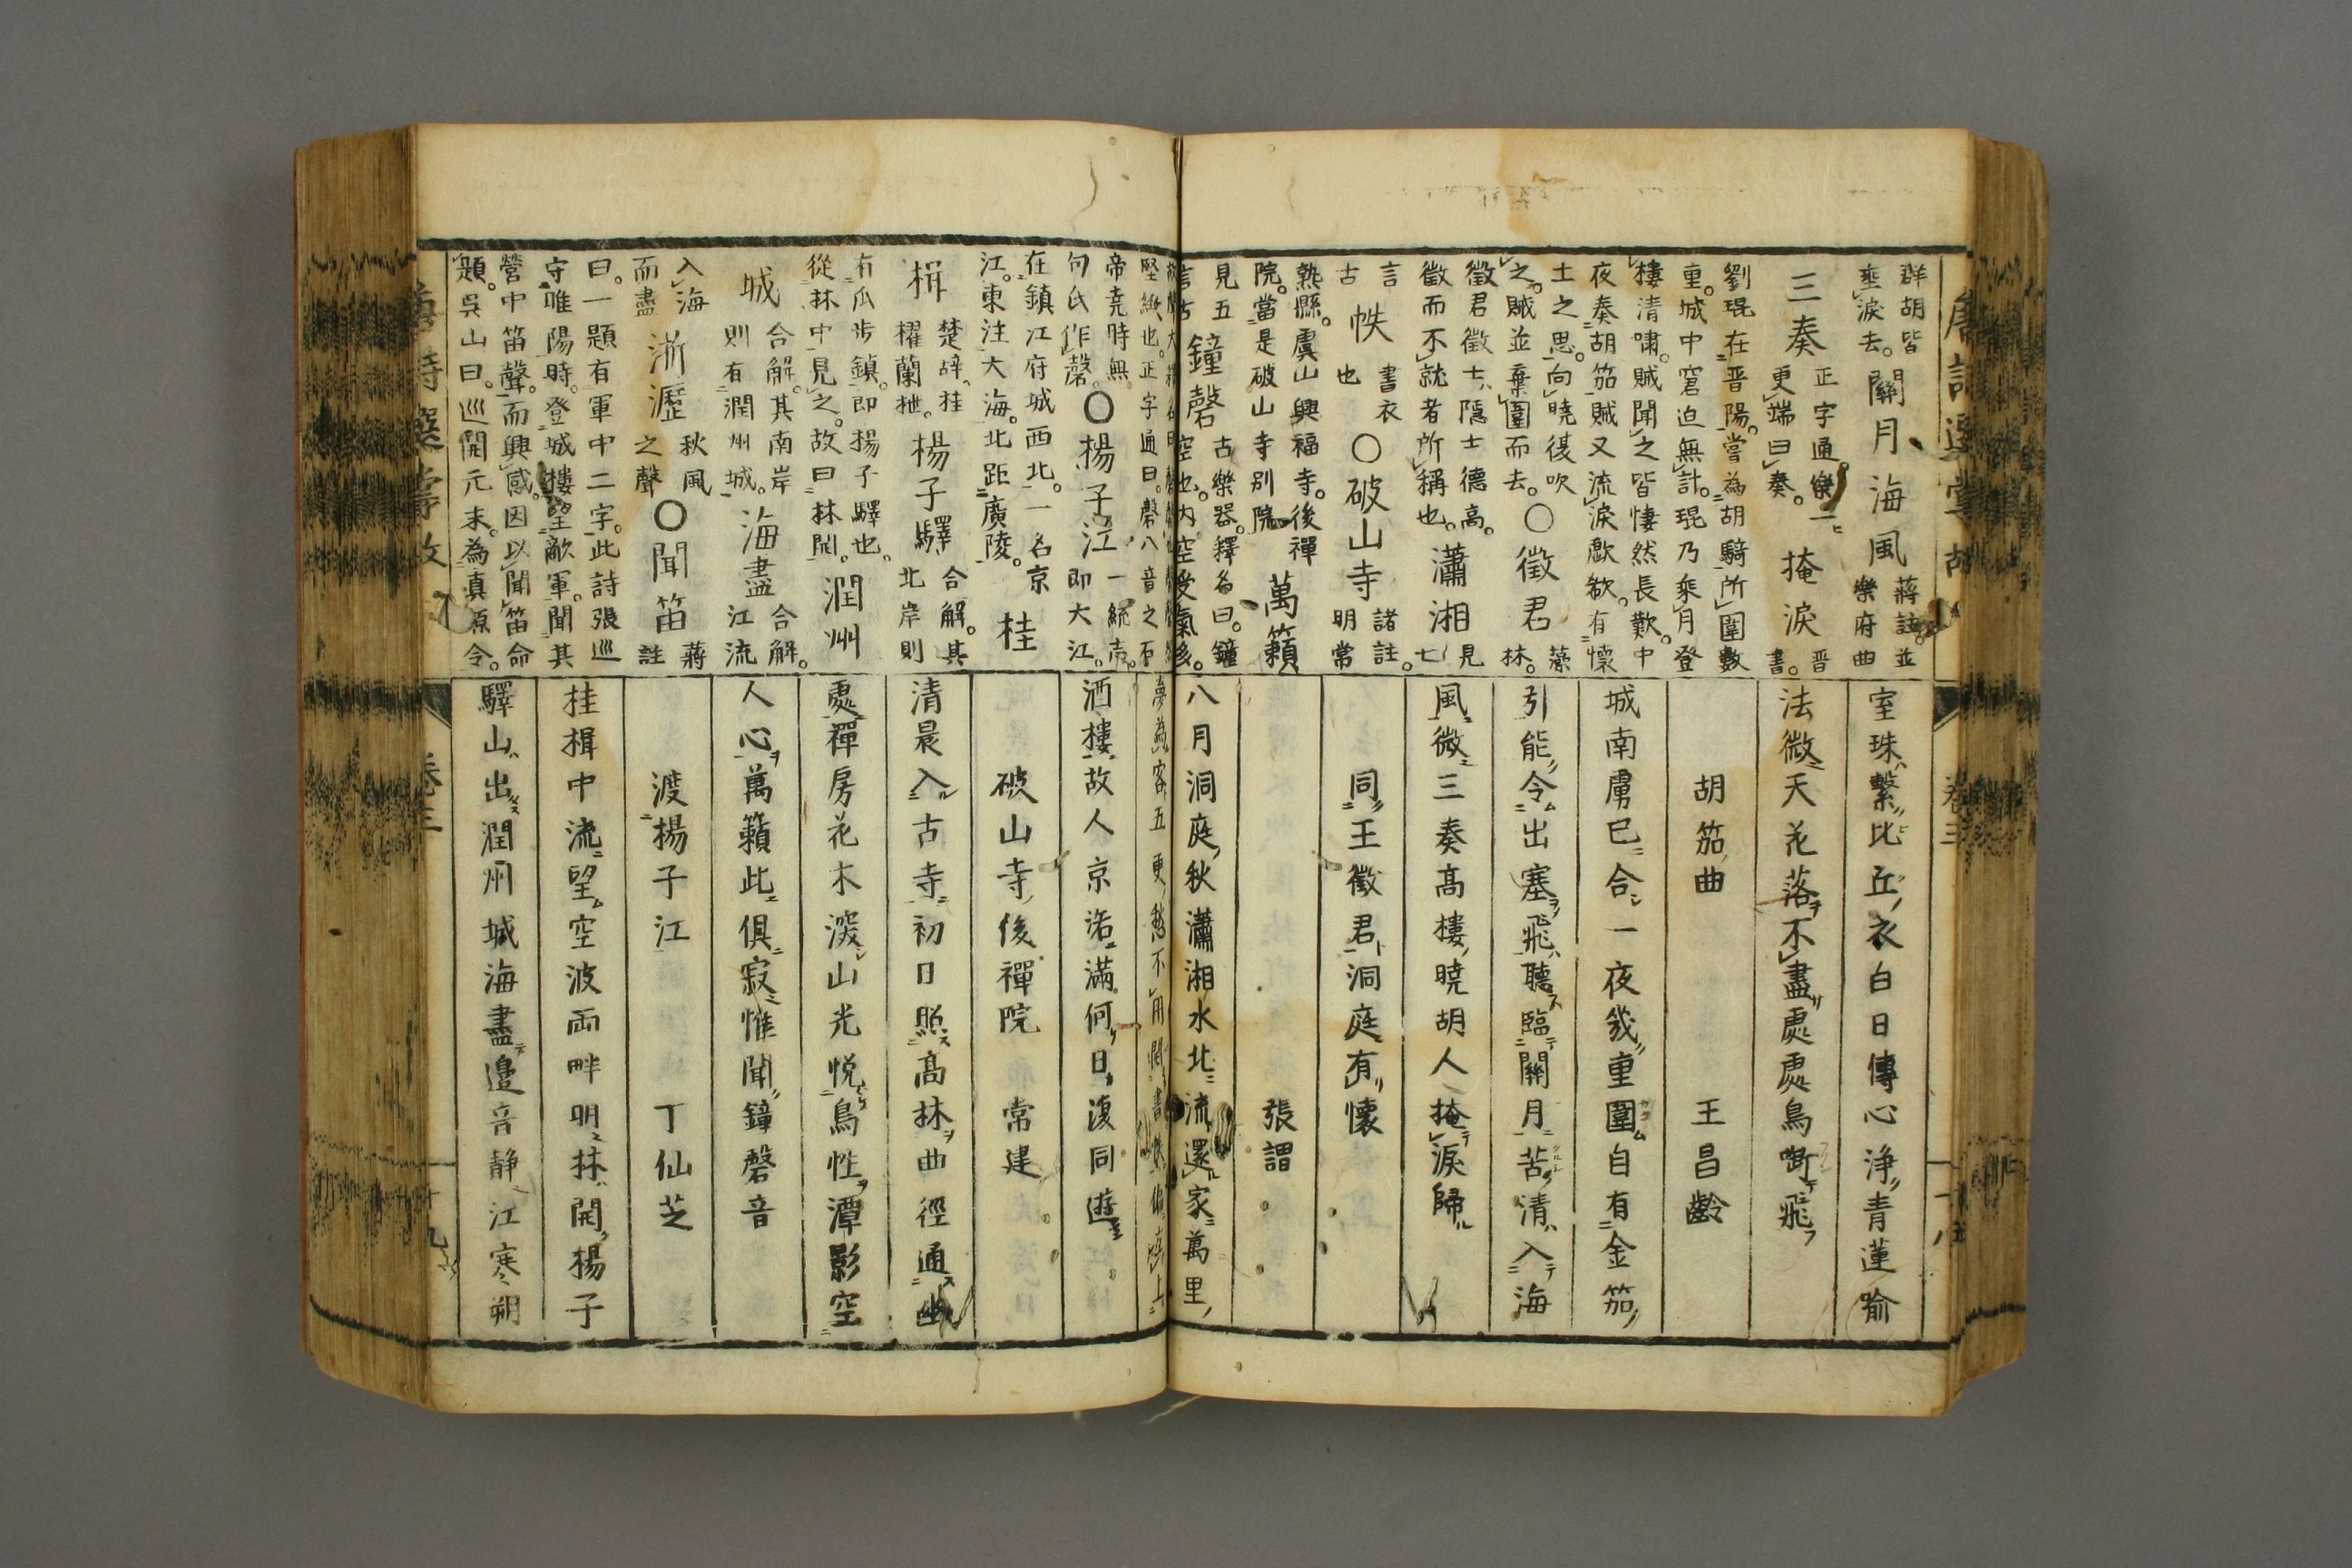 群胡皆
垂淚去。
關月 海風
蔣註。並
樂府曲
三奏
正字通。樂一
更端曰奏。
掩淚
晋
書。
劉琨在晋陽。嘗為胡騎所圍數
重。城中窘迫無計。琨乃乘月登
樓清嘯。賊聞之皆悽然長歎。中
夜奏胡笳。賊又流淚歔欷。有懷
土之思。向曉復吹
之。賊並棄圍而去。
○徵君
林。
徵君徵士、隱士德高。
徵而不就者所稱也。
瀟湘
見
七
言
古
帙
書衣
也
○破山寺
諸註。
明常
熟縣。虞山興福寺。後禪
院。當是破山寺別院
萬籟
見五
言古
鐘磬
古樂器。釋名曰。鐘
空也。内空受氣多。
室珠繫比丘衣白日傳心浄青蓮喻
法微天花落不盡處處鳥啣飛
胡笳曲 王昌齡
城南虜已合一夜幾重圍自有金笳
引能令出塞飛聽臨關月苦清入海
風微三奏高樓曉胡人掩淚歸
同王徵君洞庭有懷
張謂
八月洞庭秋瀟湘水北流還家萬里
唐詩選掌故 卷三 十八
堅緻也。正字通曰。磬八音之石
帝尭時無
句氏作磬。
○揚子江
一統志。
即大江。
在鎮江府城西北。一名京
江。東注大海。北距廣陵。
桂
楫
楚辞。桂
櫂蘭枻。
揚子驛
合解。其
北岸則
有瓜歩鎮。即揚子驛也。
從林中見之。故曰林開。
潤州
城
合解。其南岸
則有潤州城。
海盡
合解。
江流
入海
而盡
淅瀝
秋風
之聲
○聞笛
蔣
註
曰。一題有軍中二字。此詩張巡
守睢陽時。登城樓望敵軍。聞其
營中笛聲。而興感。因以聞笛命
題。呉山曰。巡開元末。為真源令。
夢為客五更愁不用開書帙偏宜上
酒樓故人京洛滿何日復同遊
破山寺後禪院 常建
清晨入古寺初日照高林曲徑通幽
處禪房花木深山光悦鳥性潭影空
人心萬籟此俱寂惟聞鐘磬音
渡揚子江 丁仙芝
桂楫中流望空波兩畔明林開揚子
驛山出潤州城海盡邊音静江寒朔
唐詩選掌故 卷三 十九